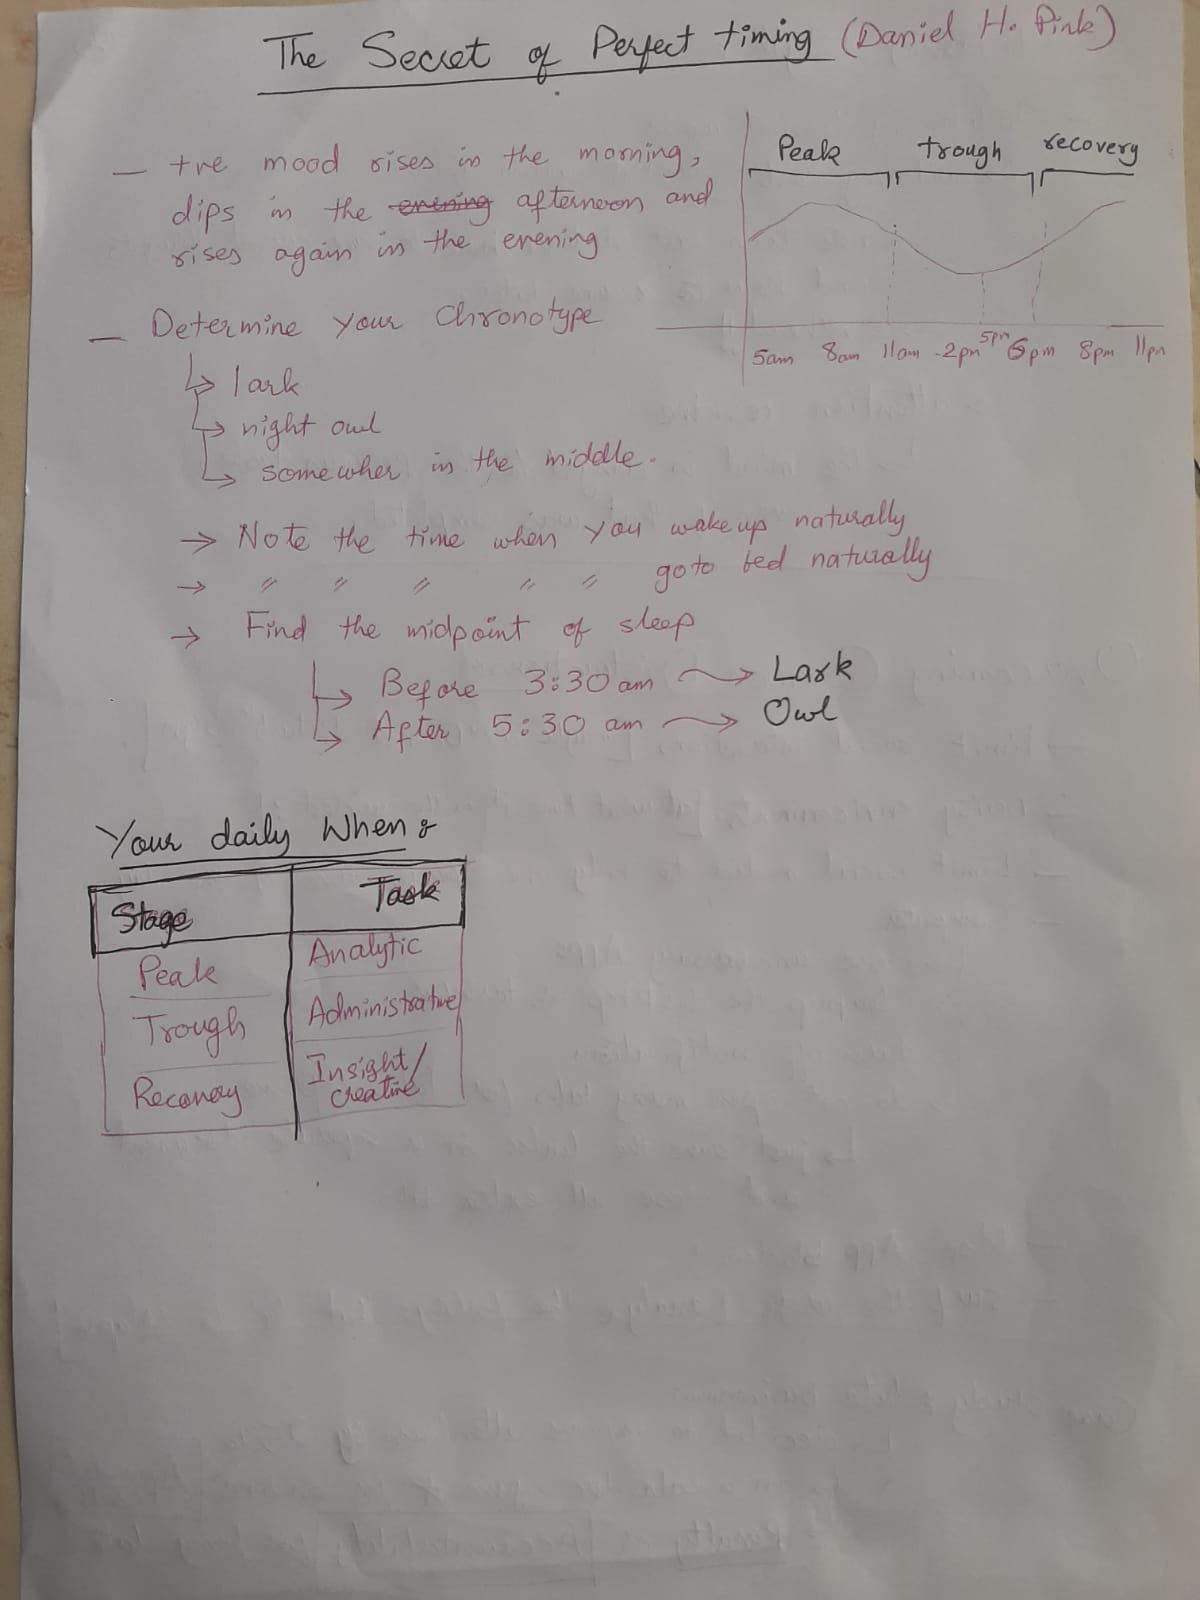 The Secret of Perfect timing (Daniel H. Pink)
— +ve mood rises in the morning,
dips in the evening afternoon and
rises again in the evening
Peak trough recovery
5am 8am 11am 2pm 5pm 6pm 8pm 11pm
— Determine your Chronotype
↳ lark
↳ night owl
↳ somewher in the middle.
→ Note the time when you wake up naturally
→ " " " " " go to bed naturally
→ Find the midpoint of sleep
↳ Before 3:30 am → Lark
↳ After 5:30 am → Owl
Your daily When :
Stage Task
Peak Analytic
Trough Administrative
Recovery Insight/
creative